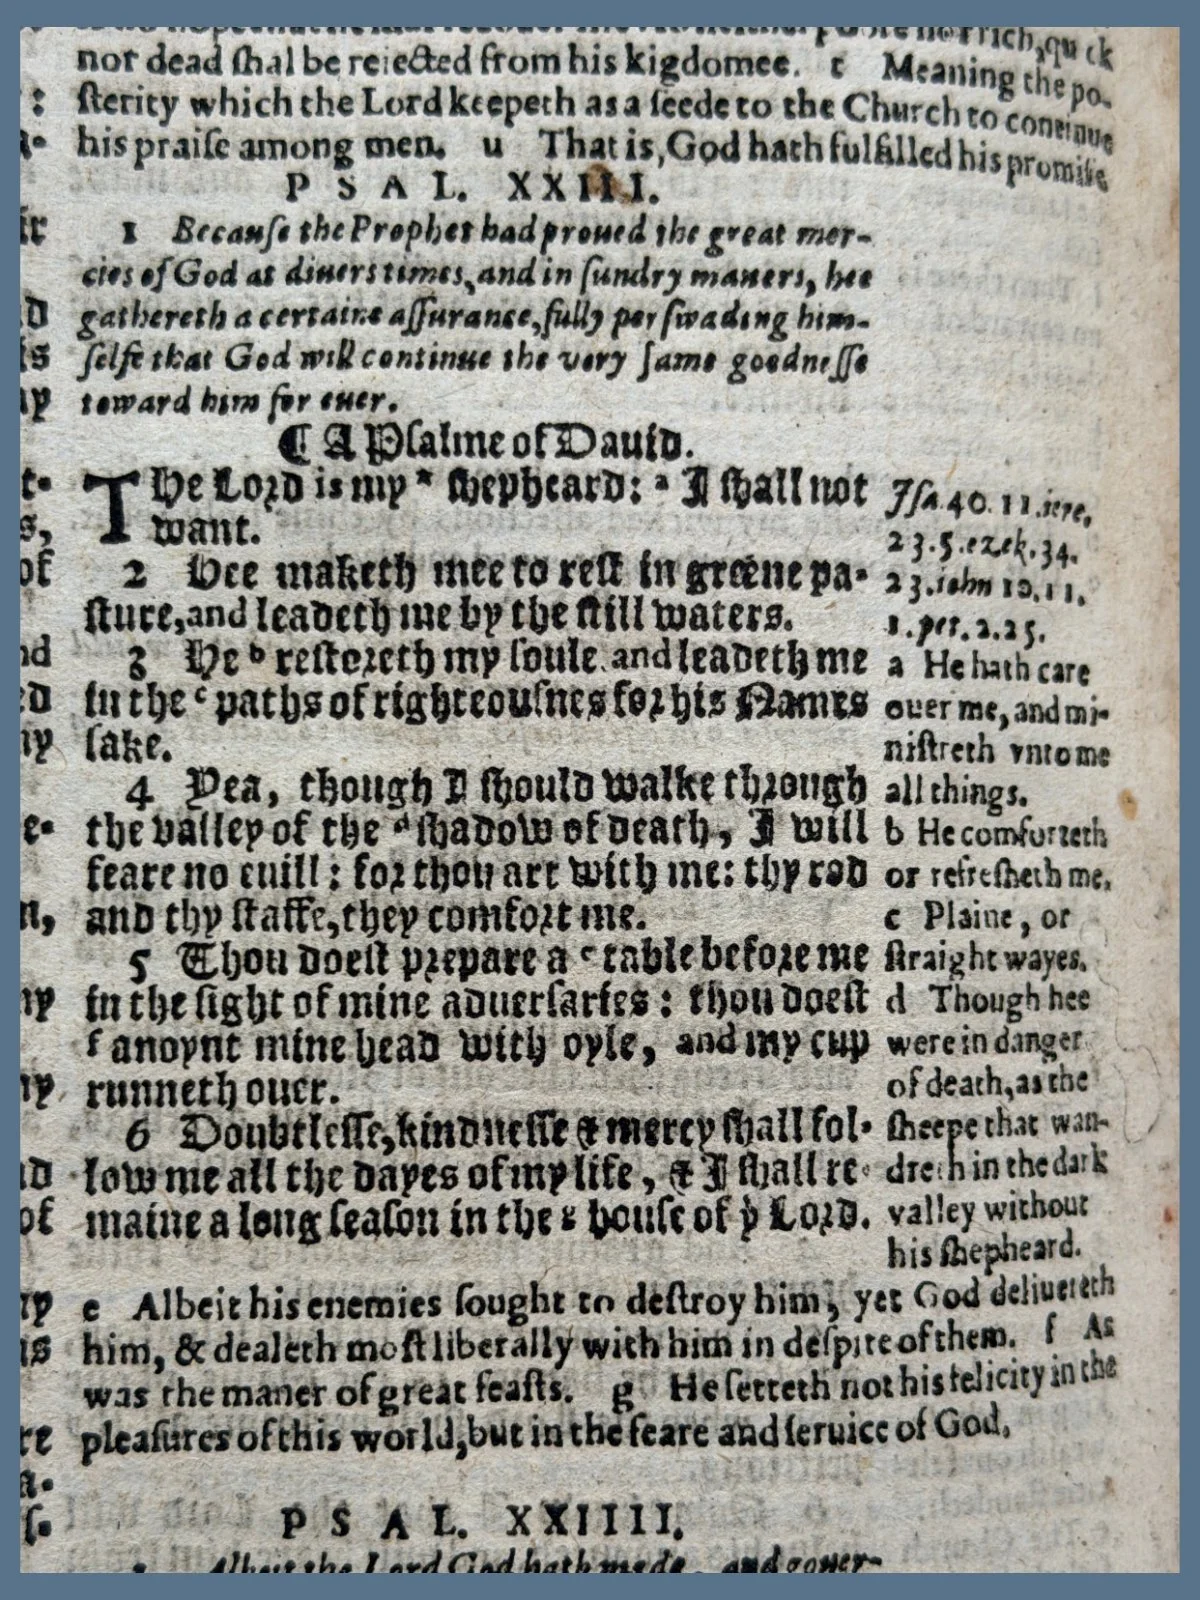 nor dead ſhal be reiected from his kigdomee. t Meaning the po-
ſterity which the Lord keepeth as a ſeede to the Church to continue
his praiſe among men. u That is, God hath fulfilled his promiſe
PSAL. XXIII.
1 Becauſe the Prophet had proued the great mer-
cies of God at diuers times, and in ſundry maners, hee
gathereth a certaine aſſurance, fully perſwading him-
ſelfe that God will continue the very ſame goodneſſe
toward him for euer.
¶ A Pſalme of Dauid.
The Lord is my * ſhepheard: a I ſhall not
want.
2 Hee maketh mee to reſt in greene pa-
ſture, and leadeth me by the ſtill waters.
3 He b reſtoreth my ſoule, and leadeth me
in the c paths of righteouſnes for his Names
ſake.
4 Yea, though I ſhould walke through
the valley of the d ſhadow of death, I will
feare no euill: for thou art with me: thy rod
and thy ſtaffe, they comfort me.
5 Thou doeſt prepare a e table before me
in the ſight of mine aduerſaries: thou doeſt
f anoynt mine head with oyle, and my cup
runneth ouer.
6 Doubtleſſe, kindneſſe & mercy ſhall fol-
low me all the dayes of my life, & I ſhall re-
maine a long ſeaſon in the g houſe of yͤ Lord.
Iſa. 40. 11. iere.
23. 5. ezek. 34.
23. iohn 10. 11.
1. pet. 2. 25.
a He hath care
ouer me, and mi-
niſtreth vnto me
all things.
b He comforteth
or refreſheth me.
c Plaine, or
ſtraight wayes.
d Though hee
were in danger
of death, as the
ſheepe that wan-
dreth in the dark
valley without
his ſhepheard.
e Albeit his enemies ſought to deſtroy him, yet God deliuereth
him, & dealeth moſt liberally with him in deſpite of them. f As
was the maner of great feaſts. g He ſetteth not his felicity in the
pleaſures of this world, but in the feare and ſeruice of God.
PSAL. XXIIII.
Albeit the Lord God hath made, and gouer-